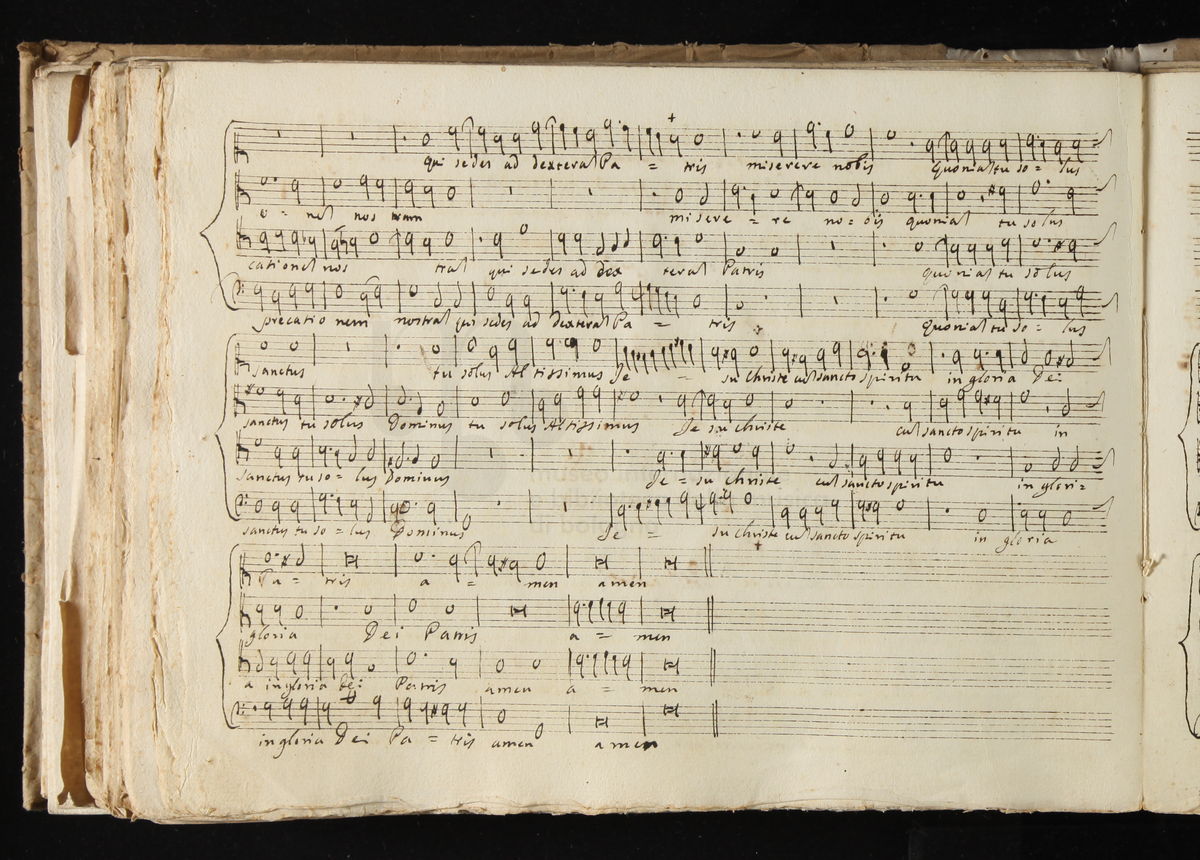 qui sedes ad dexteral Pa = tris miserere nobis Quonial tu so = lus
o = nel nos tram misere = re no = bis quonial tu solus
cationel nos tral qui sedes ad dex teral Patris quonial tu so lus
precatio nem nostral qui sedes ad dexteral Pa = tris Quonial tu so = lus
sanctus tu solus Al tissimus Je = su Christe cul sancto spiritu in gloria Dei
sanctus tu solus Dominus tu solus Altissimus Je su Christe cul sancto spiritu in
sanctus tu so = lus Dominus Je = su Christe cul sancto spiritu in glori =
sanctus tu so = lus Dominus Je = su Christe cul sancto spiritu in gloria
Pa = tris a = men amen
gloria Dei Patris a = men
a in gloria Dei Patris amen a = men
in gloria Dei Pa = tris amen amen